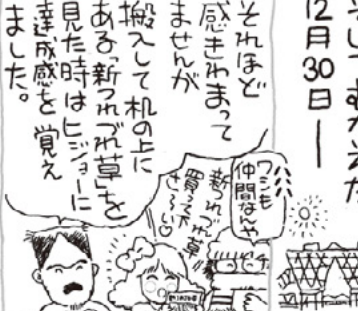 12月30日ー
それほど
感きわまって
ませんが
搬入して机の上に
ある「新つれづれ草」を
見た時はヒジョーに
達成感を覚え
ました。
ワシも
仲間なんや
新つれづれ草
買って下
さーい♡